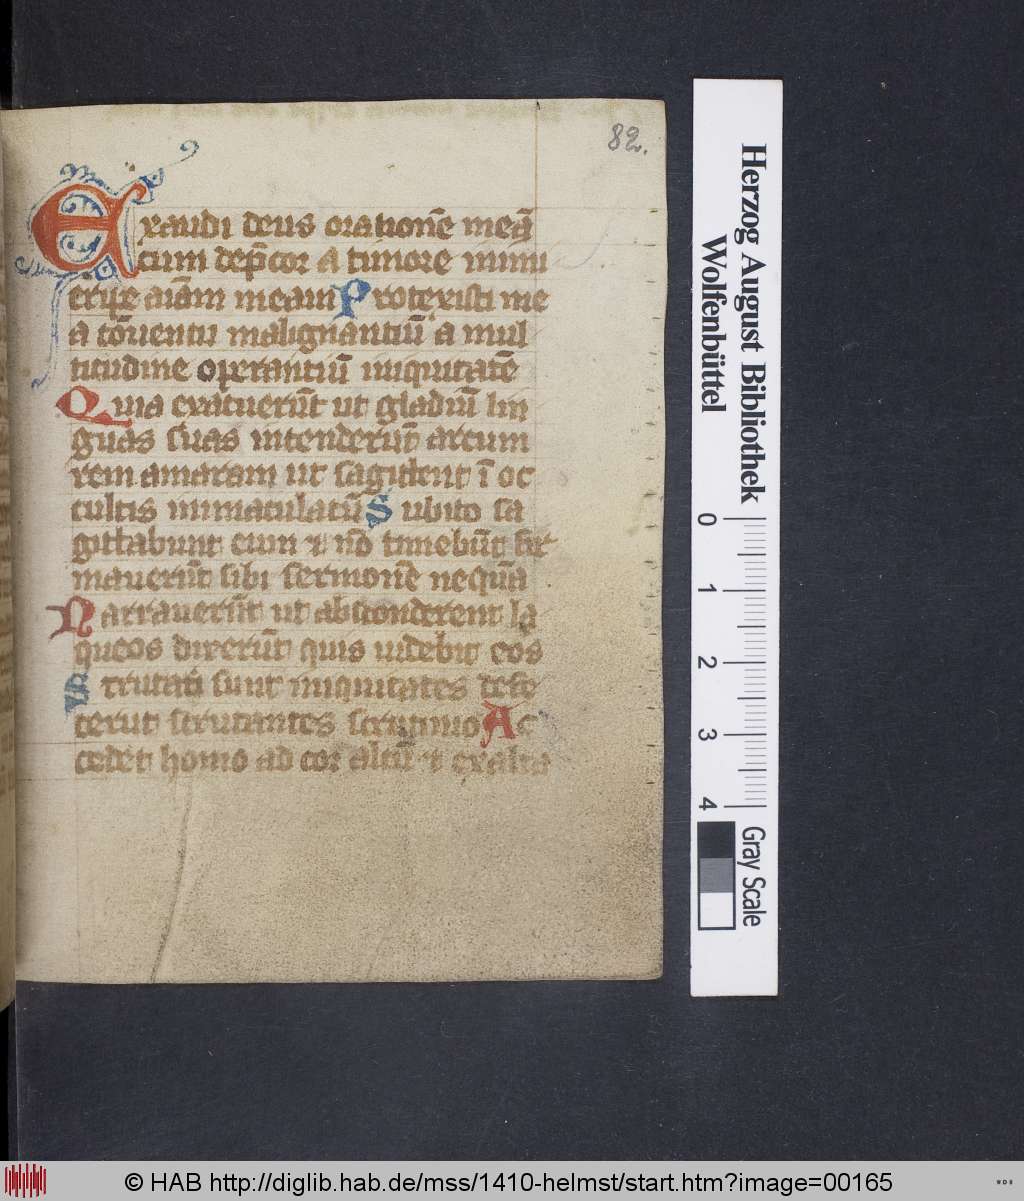 82.
Exaudi deus orationē meā
cum dep̄cor a timore inimi
eripe aīam meam Protexisti me
a cōuentu malignantiū a mul
titudine operantiū iniquitatē
Quia exacuerūt ut gladiū lin
guas suas intenderūt arcum
rem amaram ut sagittent ī oc
cultis immaculatū Subito sa
gittabunt eum ⁊ nō timebūt fir
mauerūt sibi sermonē nequā
Narrauerūt ut absconderent la
queos dixerūt quis uidebit eos
Scrutati sunt iniquitates defe
cerūt scrutantes scrutinio Ac
cedet homo ad cor altū ⁊ exalta
Herzog August Bibliothek
Wolfenbüttel
0 1 2 3 4
Gray Scale
© HAB http://diglib.hab.de/mss/1410-helmst/start.htm?image=00165